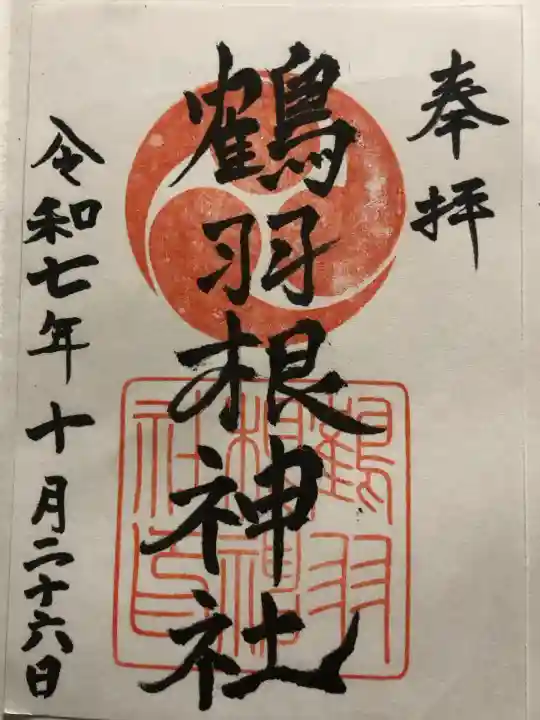 奉拝
鶴羽根神社
令和七年十月二十六日
鶴羽
根神
社印